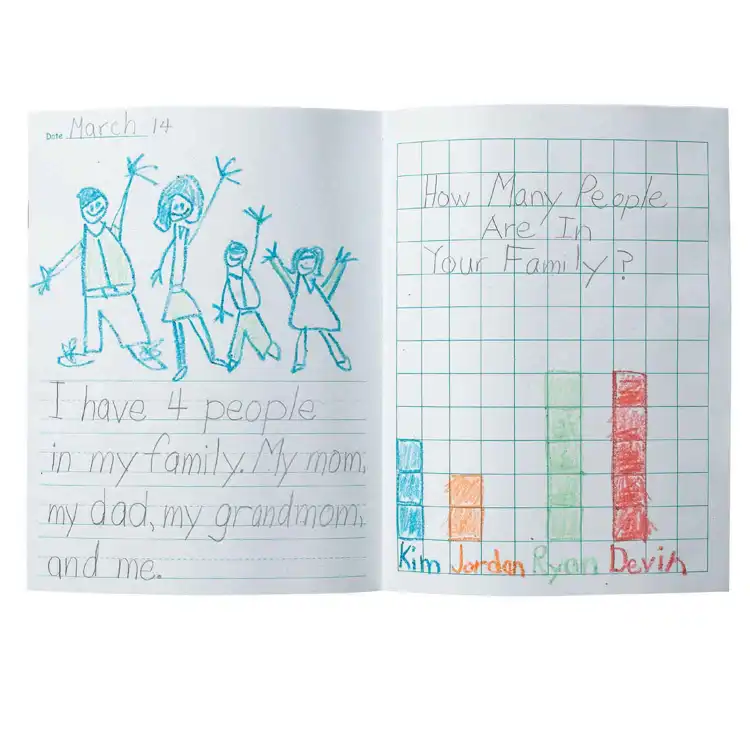 Date March 14
I have 4 people
in my family. My mom,
my dad, my grandmom,
and me.
How Many People
Are In
Your Family?
Kim Jordan Ryan Devin